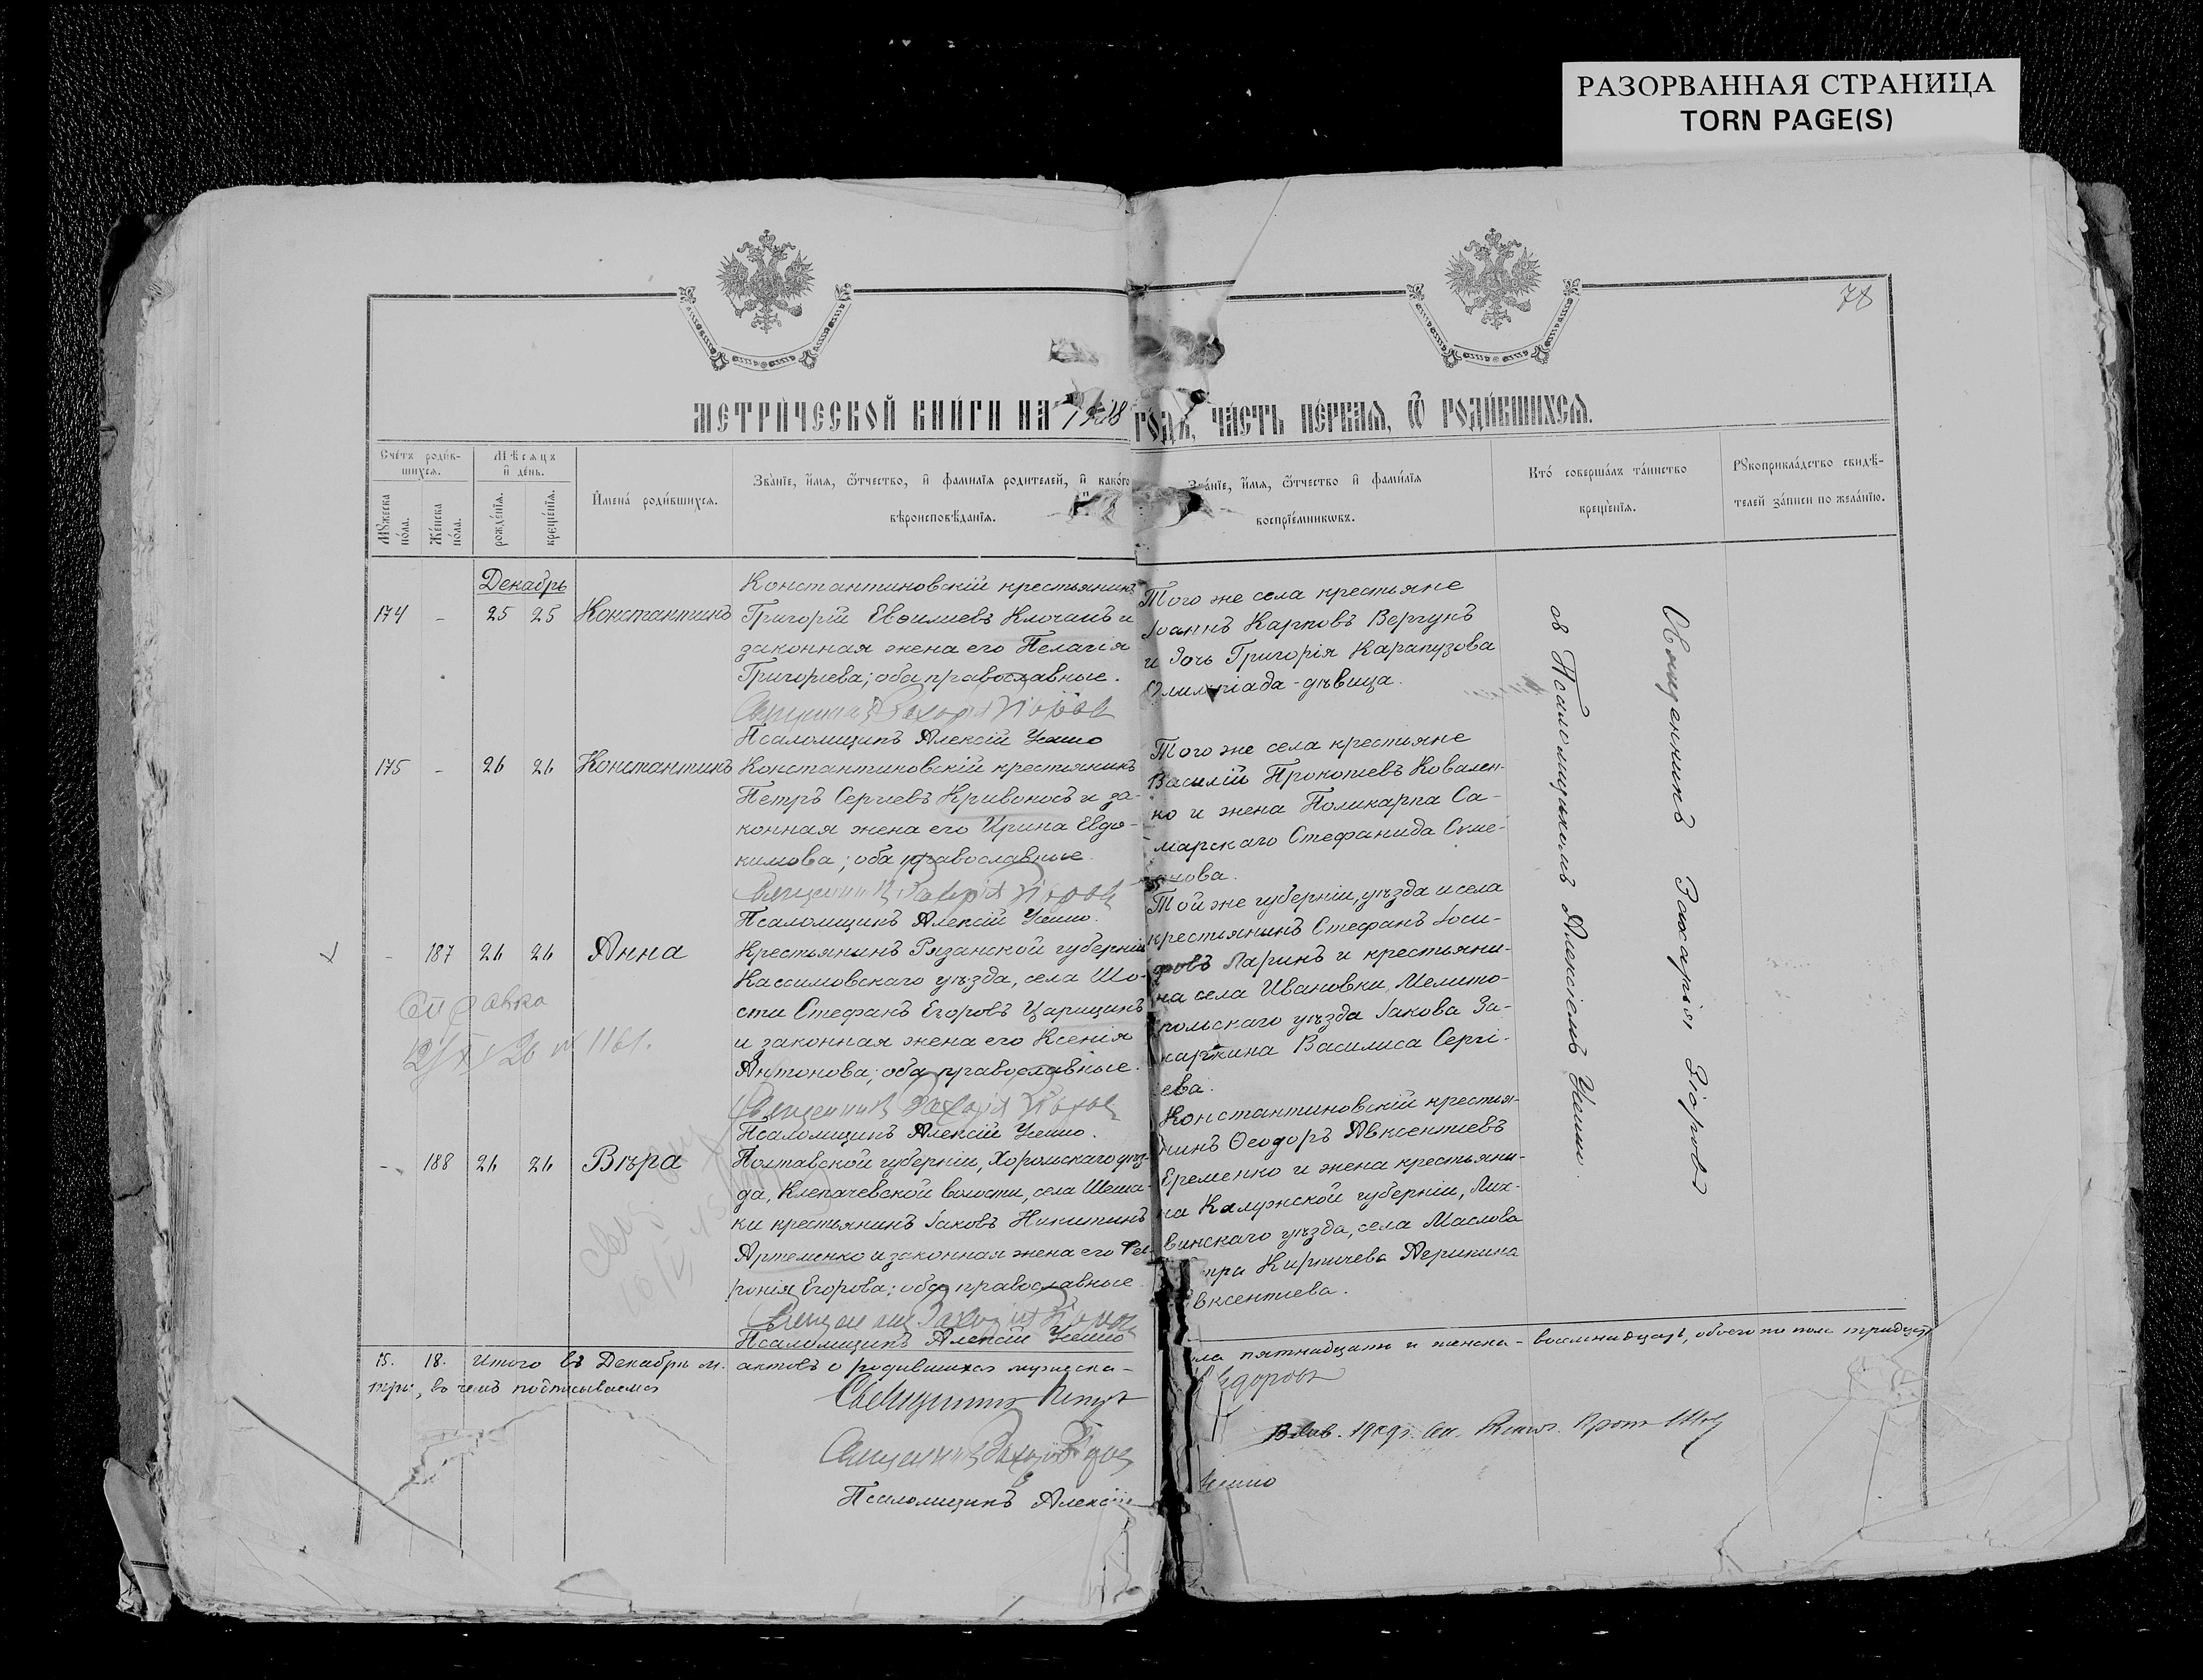 РАЗОРВАННАЯ СТРАНИЦА
TORN PAGE(S)
78
МЕТРИ́ЧЕСКОЙ КНИ́ГИ НА
ГОДЪ, ЧА́СТЬ ПЕ́РВАЯ, Ѿ РОДИ́ВШИХСЯ.
Сче́тъ роди́в-
шихся.
Мꙋжеска
по́ла.
Же́нска
по́ла.
Мѣсяцъ
и де́нь.
рожде́нія.
креще́нія.
Имена́ роди́вшихся.
Зва́нїе, и́мя, ѻ́тчество, и фами́лїя родителей, и како́го
вѣроисповѣ́данїя.
Зва́нїе, и́мя, ѻ́тчество и фами́лїя
воспрїе́мникѡвъ.
Кто́ соверша́лъ та́инство
креще́нїя.
Рꙋкоприкла́дство свидѣ́-
телей за́писи по жела́нїю.
Декабрь
174 - 25 25 Константинъ
Константиновскій крестьянинъ
Григорій Евѳиміевъ Клочанъ и
законная жена его Пелагія
Григорьева; оба православные.
Священникъ Захарія
Псаломщикъ Алексій Уешо
Того же села крестьяне
Іоаннъ Карповъ Вергунъ
и дочь Григорія Карапузова
Олимпіада - дѣвица.
175 - 26 26 Константинъ
Константиновскій крестьянинъ
Петръ Сергіевъ Кривоносъ и за-
конная жена его Ирина Евдо-
кимова; оба православные.
Священникъ Захарія
Псаломщикъ Алексій Уешо.
Того же села крестьяне
Василій Прокопіевъ Ковален-
ко и жена Поликарпа Са-
марскаго Стефанида Симе-
онова.
- 187 26 26 Анна
Крестьянинъ Рязанской губерніи
Кассимовскаго уѣзда, села Шо-
сти Стефанъ Егоровъ Царицинъ
и законная жена его Ксенія
Антонова; оба православные.
Священникъ Захарія
Псаломщикъ Алексій Уешо.
Той же губерніи, уѣзда и села
крестьянинъ Стефанъ Іоси-
фовъ Ларинъ и крестьяни-
на села Ивановки, Мелито-
польскаго уѣзда Іакова За-
Василиса Сергі-
ева.
Справка
- 188 26 26 Вѣра
Полтавской губерніи, Хорольскаго уѣз-
да, Клепачевской волости, села Шеша-
ки крестьянинъ Іаковъ Никитинъ
Артеменко и законная жена его Фев-
ронія Егорова; оба православные
Священникъ Захарія
Псаломщикъ Алексій Уешо
Константиновскій крестья-
нинъ Ѳеодоръ Авксентіевъ
Еременко и жена крестьяни-
на Калужской губерніи, Лих-
винскаго уѣзда, села Маслова
Кирпичева
Авксентіева.
Священникъ Захарія
съ Псаломщикомъ Алексіемъ Уешо.
15. 18. Итого въ Декабрѣ м. актовъ о родившихся мужеска-
пола пятнадцать и женска - восемнадцать, обоего же пола тридцать
три, въ чемъ подписываемся
Священникъ Петръ
Священникъ Захарія
Псаломщикъ Алексій
Уешо